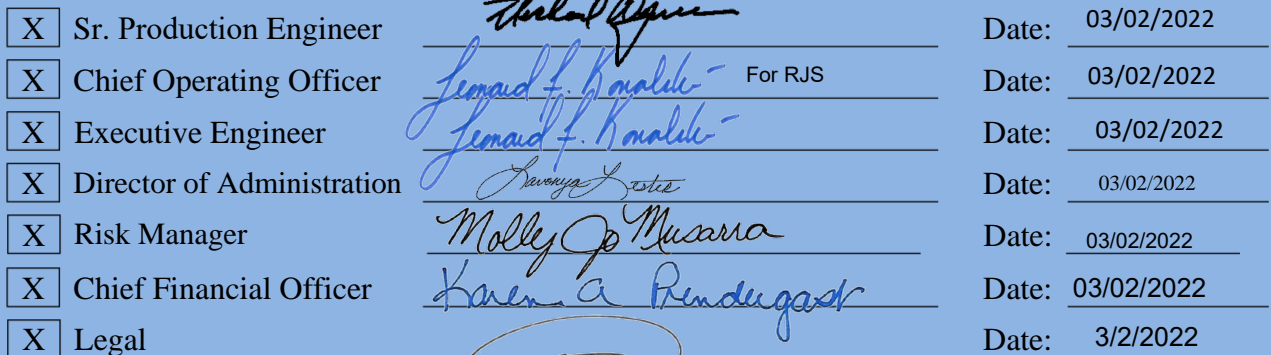 X Sr. Production Engineer Date: 03/02/2022
X Chief Operating Officer For RJS Date: 03/02/2022
X Executive Engineer Date: 03/02/2022
X Director of Administration Date: 03/02/2022
X Risk Manager Molly Jo Musarra Date: 03/02/2022
X Chief Financial Officer Karen A Prendergast Date: 03/02/2022
X Legal Date: 3/2/2022